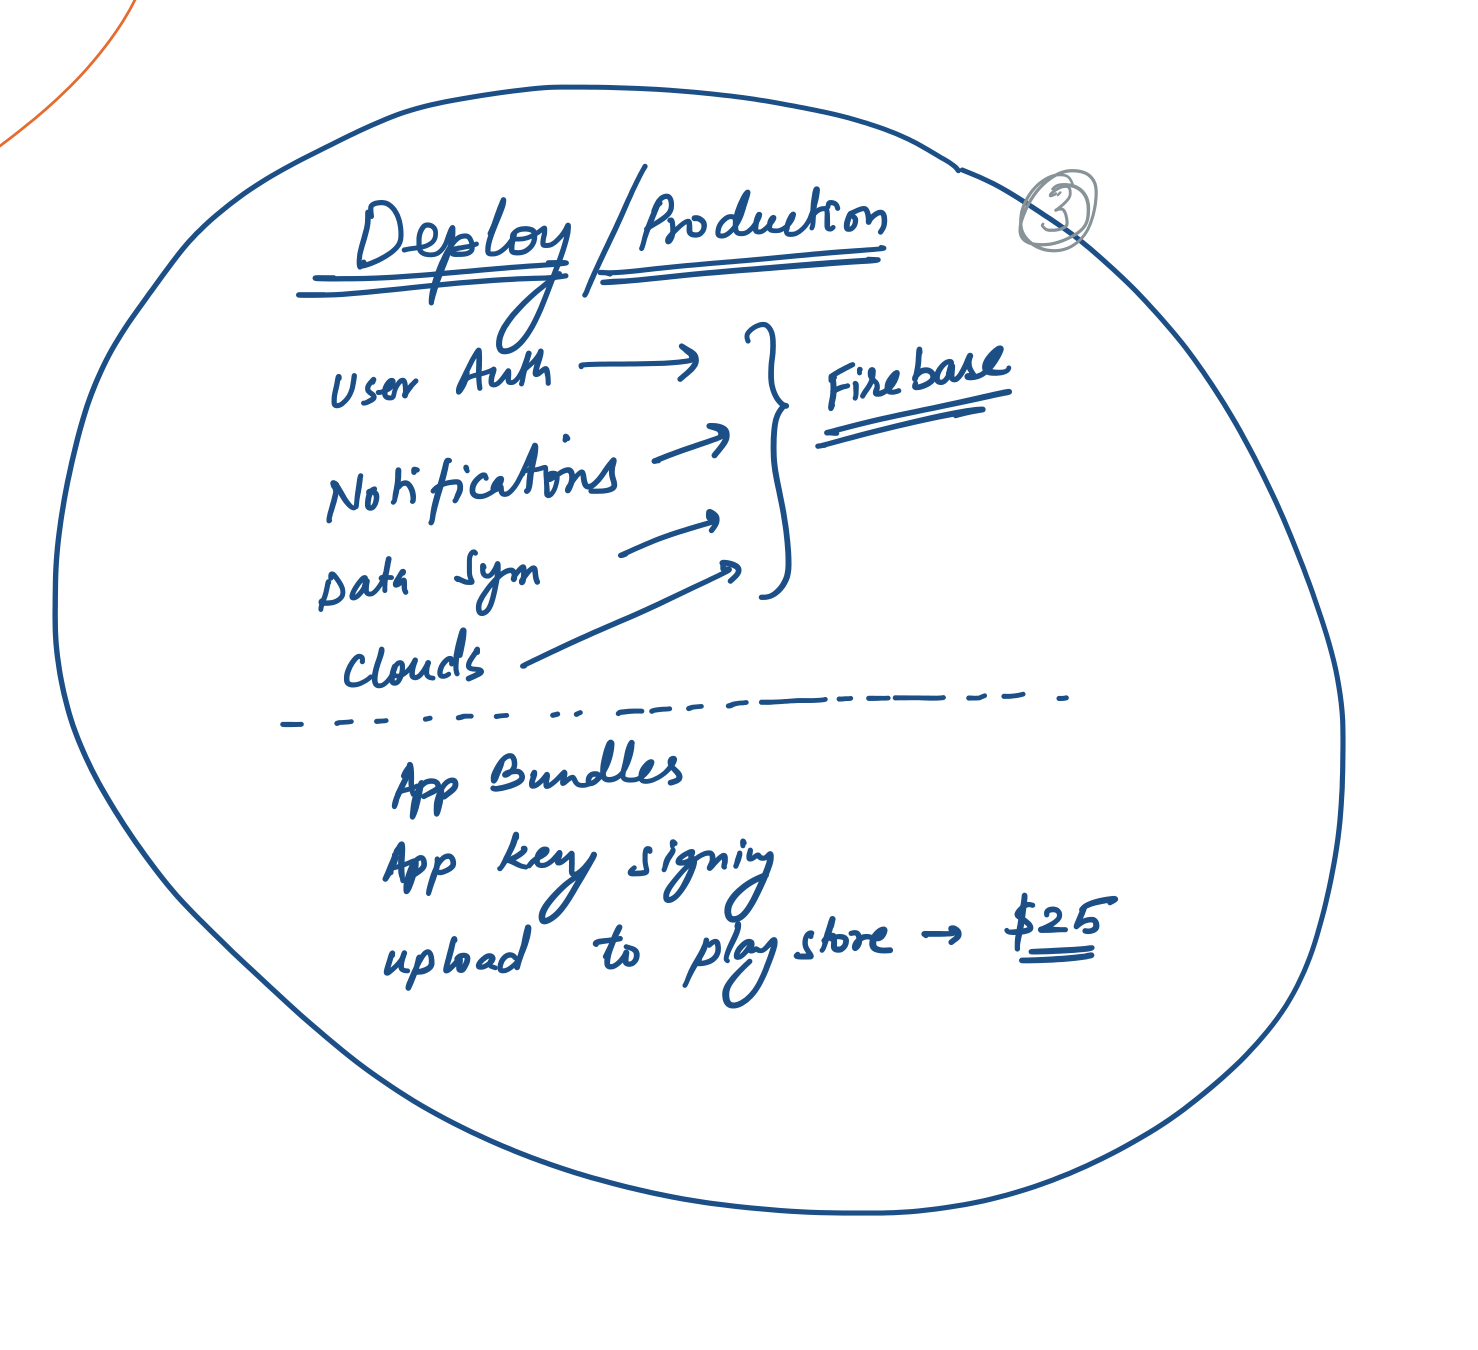 3
Deploy / Production
User Auth → } Firebase
Notifications →
Data Sym →
Clouds →
App Bundles
App key signing
upload to play store → $25